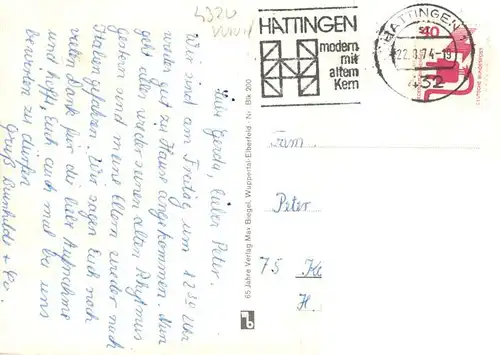 4320
HATTINGEN
modern
mit
altem
Kern
HATTINGEN 1
22.8.74-18
432
40
DEUTSCHE BUNDESPOST
Liebe Gerda, lieber Peter.
Wir sind am Freitag um 12 30 Uhr
wieder gut zu Haus angekommen. Nun
geht alles wieder seinen alten Rhytmus.
gestern sind meine Eltern wieder nach
Italien gefahren. Wir sagen Euch noch
vielen Dank für die liebe Aufnahme
und hoffe, Euch auch mal bei uns
bewirten zu dürfen
Gruß Brunhilde +
65 Jahre Verlag Max Biegel, Wuppertal-Elberfeld · Nr. Blk 200
Fam.
Peter
75 K
H.